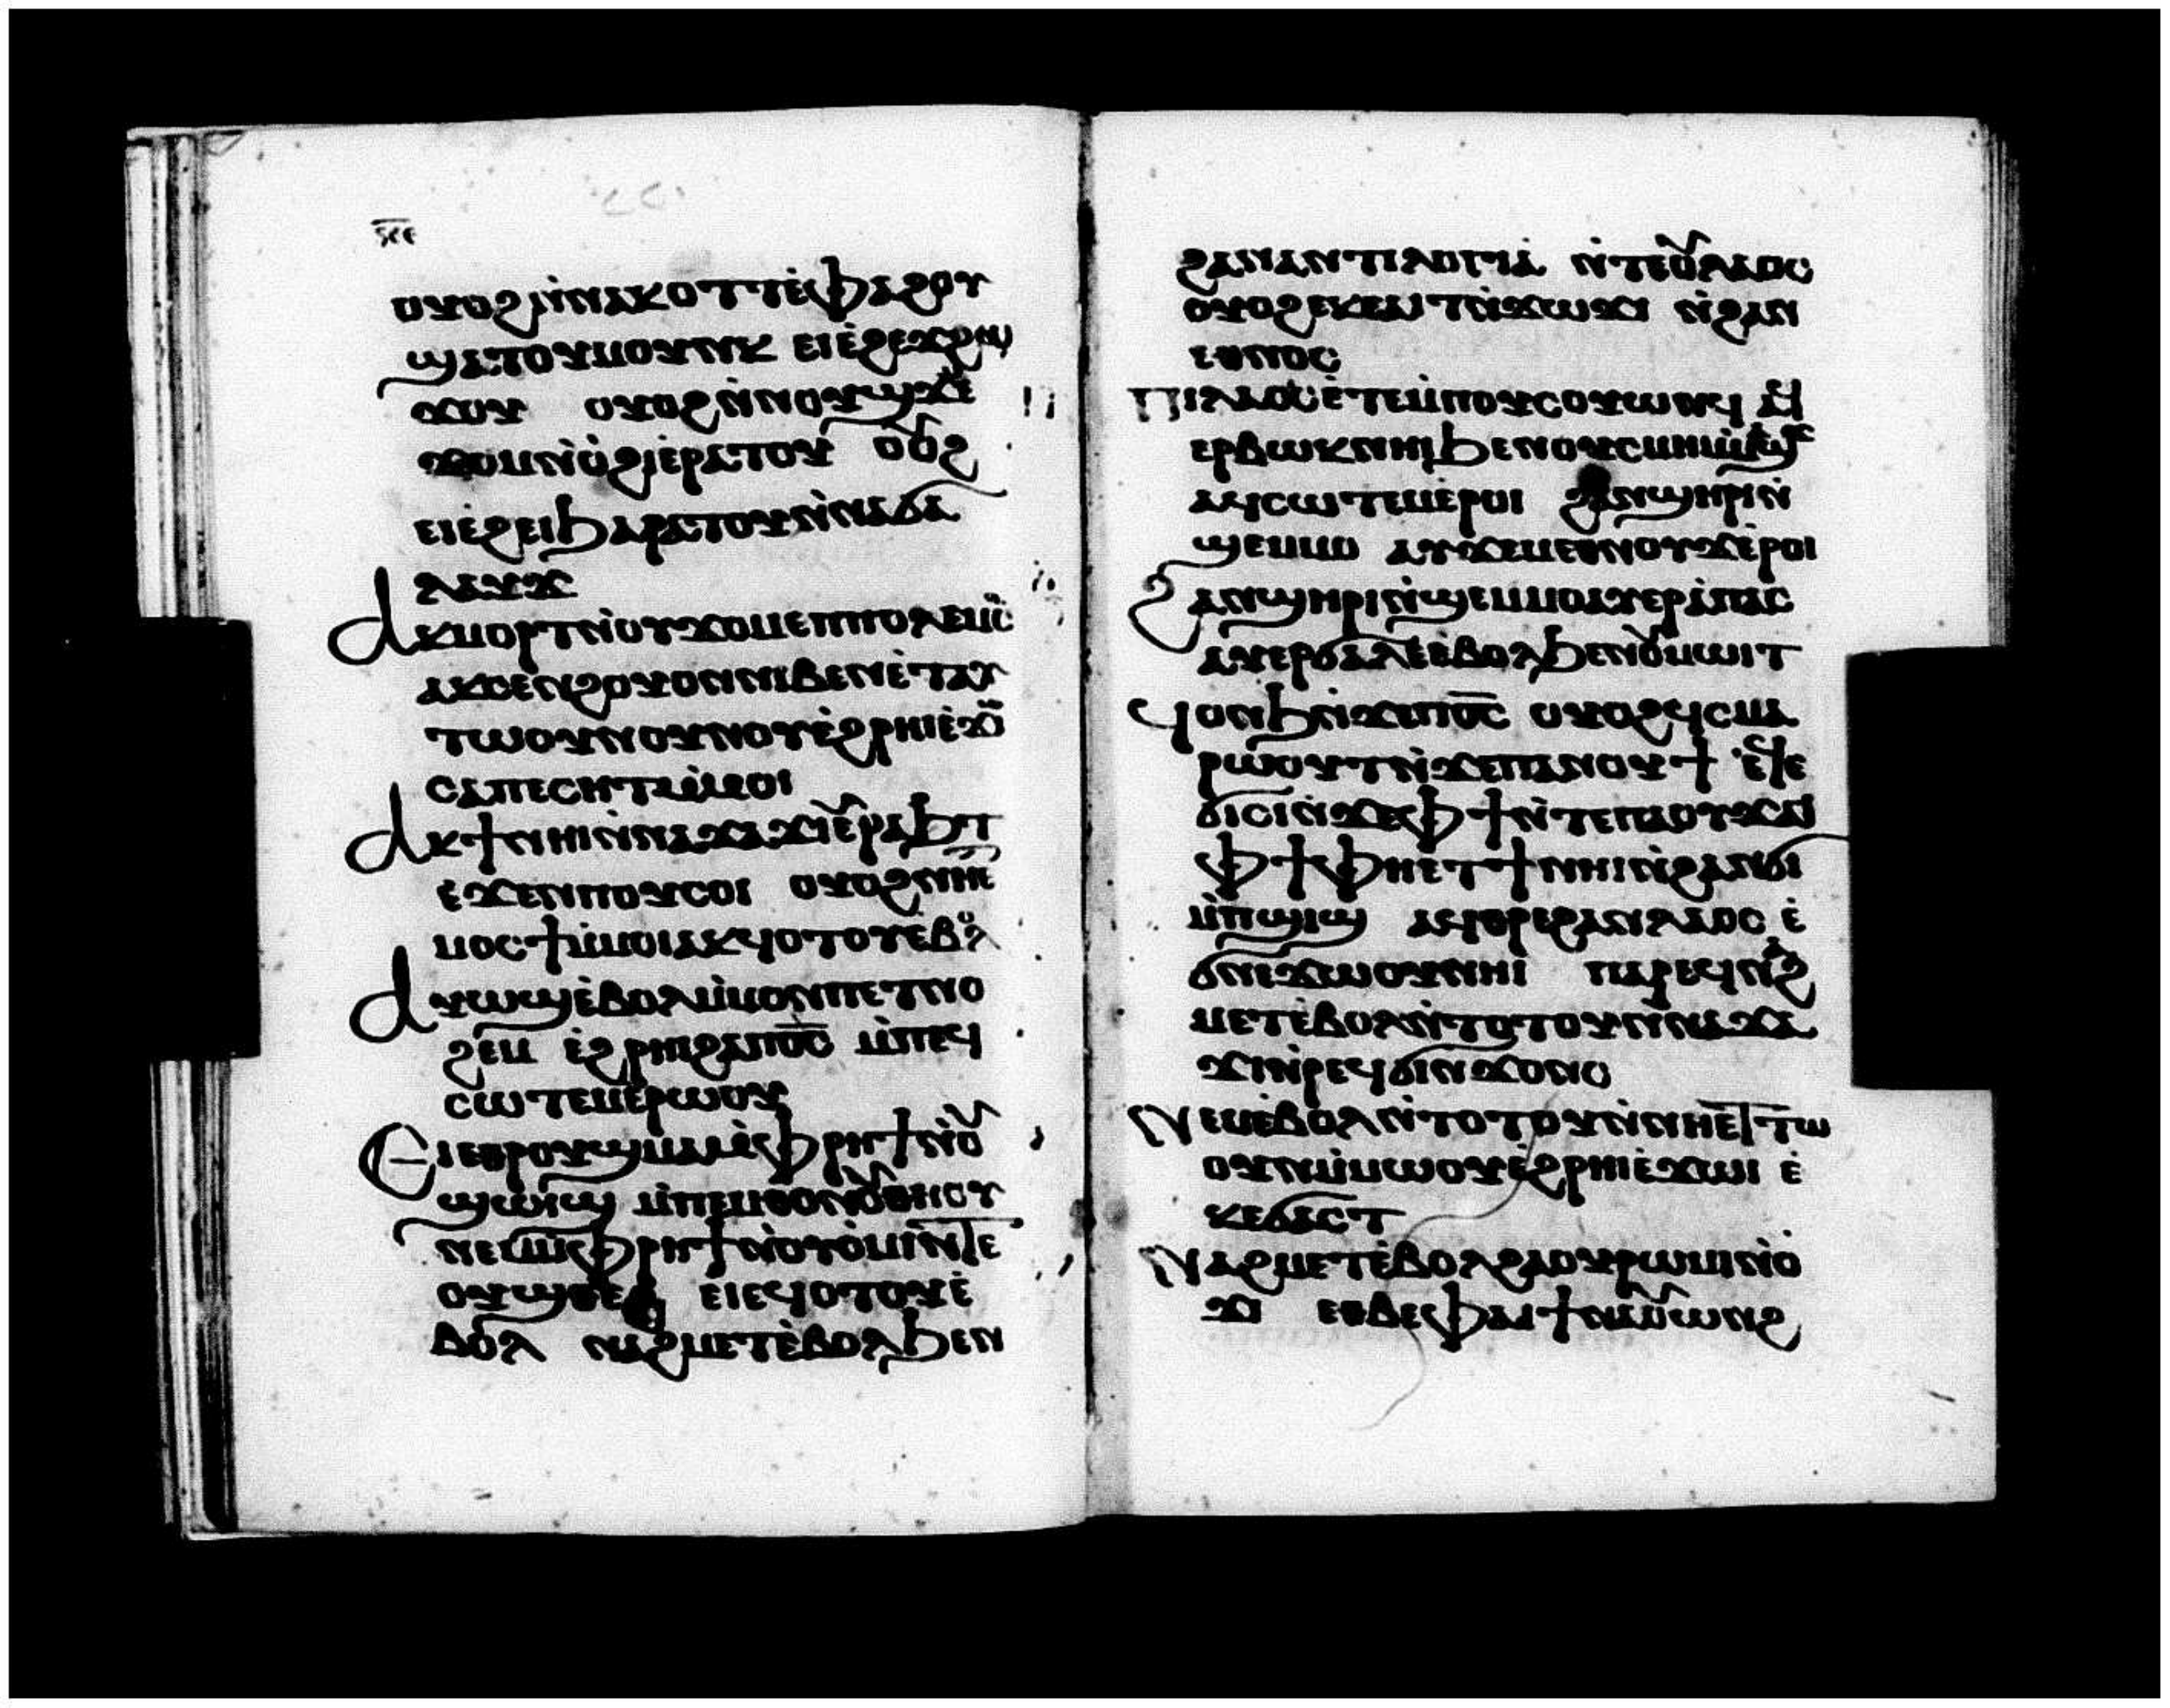 ⲟⲩⲟϩⲛ̀ⲛⲁⲕⲟⲧⲧⲉ̀ⲫⲁϩⲟⲩ
ϣⲁⲧⲟⲩⲙⲟⲩⲛⲕ ⲉⲓⲉ̀ϩⲉϫϩⲱ
ϫⲟⲩ ⲟⲩⲟϩⲛ̀ⲛⲟⲩϣϫⲉ
ϫⲟⲙⲛ̀ⲟ̀ϩⲓⲉ̀ⲣⲁⲧⲟⲩ ⲟⲩⲟϩ
ⲉⲓⲉ̀ϩⲉⲓϧⲁⲣⲁⲧⲟⲩⲛ̀ⲛⲁϭⲁ
ⲗⲁⲩϫ
ⲁⲕⲙⲟⲣⲧⲛ̀ⲟⲩϫⲟⲙⲉⲡⲡⲟⲗⲉⲙⲥ
ⲁⲕⲥⲉⲛϩⲟⲩⲟⲛⲛⲓⲃⲉⲛⲉ̀ⲧⲁⲩ
ⲧⲱⲟⲩⲛⲟⲩⲛⲟⲩⲉ̀ϩⲣⲏⲓⲉ̀ϫⲱ
ⲥⲁⲡⲉⲥⲏⲧⲙ̀ⲙⲟⲓ
ⲁⲕϯⲛⲏⲓⲛ̀ⲛⲁϫⲁϫⲓⲉ̀ⲣⲁϧⲧ
ⲉ̀ϫⲉⲛⲡⲟⲩⲥⲟⲓ ⲟⲩⲟϩⲛⲏⲉ
ⲙⲟⲥϯⲙ̀ⲙⲟⲓⲁⲕϥⲟⲧⲟⲩⲉ̀ⲃⲟⲗ
ⲁⲩⲱϣⲉ̀ⲃⲟⲗⲙ̀ⲙⲟⲛⲡⲉⲧⲛⲟ
ϩⲉⲙ ⲉ̀ϩⲣⲏⲓϩⲁⲡⲟ̅ⲥ̅ ⲙ̀ⲡⲉϥ
ⲥⲱⲧⲉⲙⲉ̀ⲣⲱⲟⲩ
ⲉⲓⲉⲑⲣⲟⲩϣⲙⲁⲙ̀ⲫⲣⲏϯⲛ̀ⲟⲩ
ϣⲱⲓϣ ⲙ̀ⲡⲉⲙⲑⲟⲛⲟⲩⲑⲏⲟⲩ
ⲛⲉⲙⲙ̀ⲫⲣⲏϯⲛ̀ⲟⲩⲟ̀ⲙⲓⲛ̀ⲧⲉ
ⲟⲩϣⲑⲉϩ ⲉⲓⲉϥⲟⲧⲟⲩⲉ̀
ⲃⲟⲗ ⲛⲁϩⲙⲉⲧⲉ̀ⲃⲟⲗϧⲉⲛ
ϩⲁⲛⲁⲛⲧⲓⲗⲟⲅⲓⲁ̀ ⲛ̀ⲧⲉⲟⲩⲗⲁⲟⲥ
ⲟⲩⲟϩⲉⲕⲉⲁⲓⲧⲛ̀ϫⲱϫⲓ ⲛ̀ϩⲁⲛ
ⲉⲑⲛⲟⲥ
ⲡⲓⲗⲁⲟⲥⲉ̀ⲧⲉⲙ̀ⲡⲟⲩⲥⲟⲩⲱⲛϥ ⲁϥ
ⲉⲣⲃⲱⲕⲛⲏⲓϧⲉⲛⲟⲩⲥⲙⲏⲙ̀ⲙⲁϣϫ
ⲁϥⲥⲱⲧⲉⲙⲉ̀ⲣⲟⲓ ϩⲁⲛϣⲏⲣⲓⲛ̀
ϣⲉⲙⲙⲟ ⲁⲩϫⲉⲙⲉⲑⲛⲟⲩϫⲉ̀ⲣⲟⲓ
ϩⲁⲛϣⲏⲣⲓⲛ̀ϣⲉⲙⲙⲟⲁⲩⲉⲣⲁ̀ⲡⲁⲥ
ⲁⲩⲉⲣϭⲁⲗⲉⲉ̀ⲃⲟⲗϧⲉⲛⲟⲩⲙⲱⲓⲧ
ϥⲟⲛϧⲛ̀ϫⲉⲡⲟ̅ⲥ̅ ⲟⲩⲟϩϥⲥⲙⲁ
ⲣⲱⲟⲩⲧⲛ̀ϫⲉⲡⲁⲛⲟⲩϯ ⲉϥⲉ
ϭⲓⲥⲓⲛ̀ϫⲉⲫϯⲛ̀ⲧⲉⲡⲁⲟⲩϫⲁⲓ
ⲫϯⲫⲏⲉ̀ⲧϯⲛⲏⲓⲛ̀ϩⲁⲛϭⲓ
ⲙ̀ⲡϣⲓϣ ⲁϥⲑⲣⲉϩⲁⲛⲗⲁⲟⲥ ⲉ̀
ϭⲛⲉϫⲱⲟⲩⲛⲏⲓ ⲡⲁⲣⲉϥⲛⲁϩ
ⲙⲉⲧⲉ̀ⲃⲟⲗⲛ̀ⲧⲟⲧⲟⲩⲛ̀ⲛⲁϫⲁ
ϫⲓⲛ̀ⲣⲉϥϭⲓⲛϫⲟⲛⲥ
ⲛⲉⲙⲉ̀ⲃⲟⲗⲛ̀ⲧⲟⲧⲟⲩⲛ̀ⲛⲏⲉⲧⲧⲱ
ⲟⲩⲛⲙ̀ⲙⲱⲟⲩⲉ̀ϩⲣⲏⲓⲉ̀ϫⲱⲓ ⲉ̀
ⲕⲉϭⲁⲥⲧ
ⲛⲁϩⲙⲉⲧⲉ̀ⲃⲟⲗϩⲁⲟⲩⲣⲱⲙⲓⲛ̀ⲟ̀
ϫⲓ ⲉⲑⲃⲉⲫⲁⲓϯⲛⲁⲟⲩⲱⲛϩ